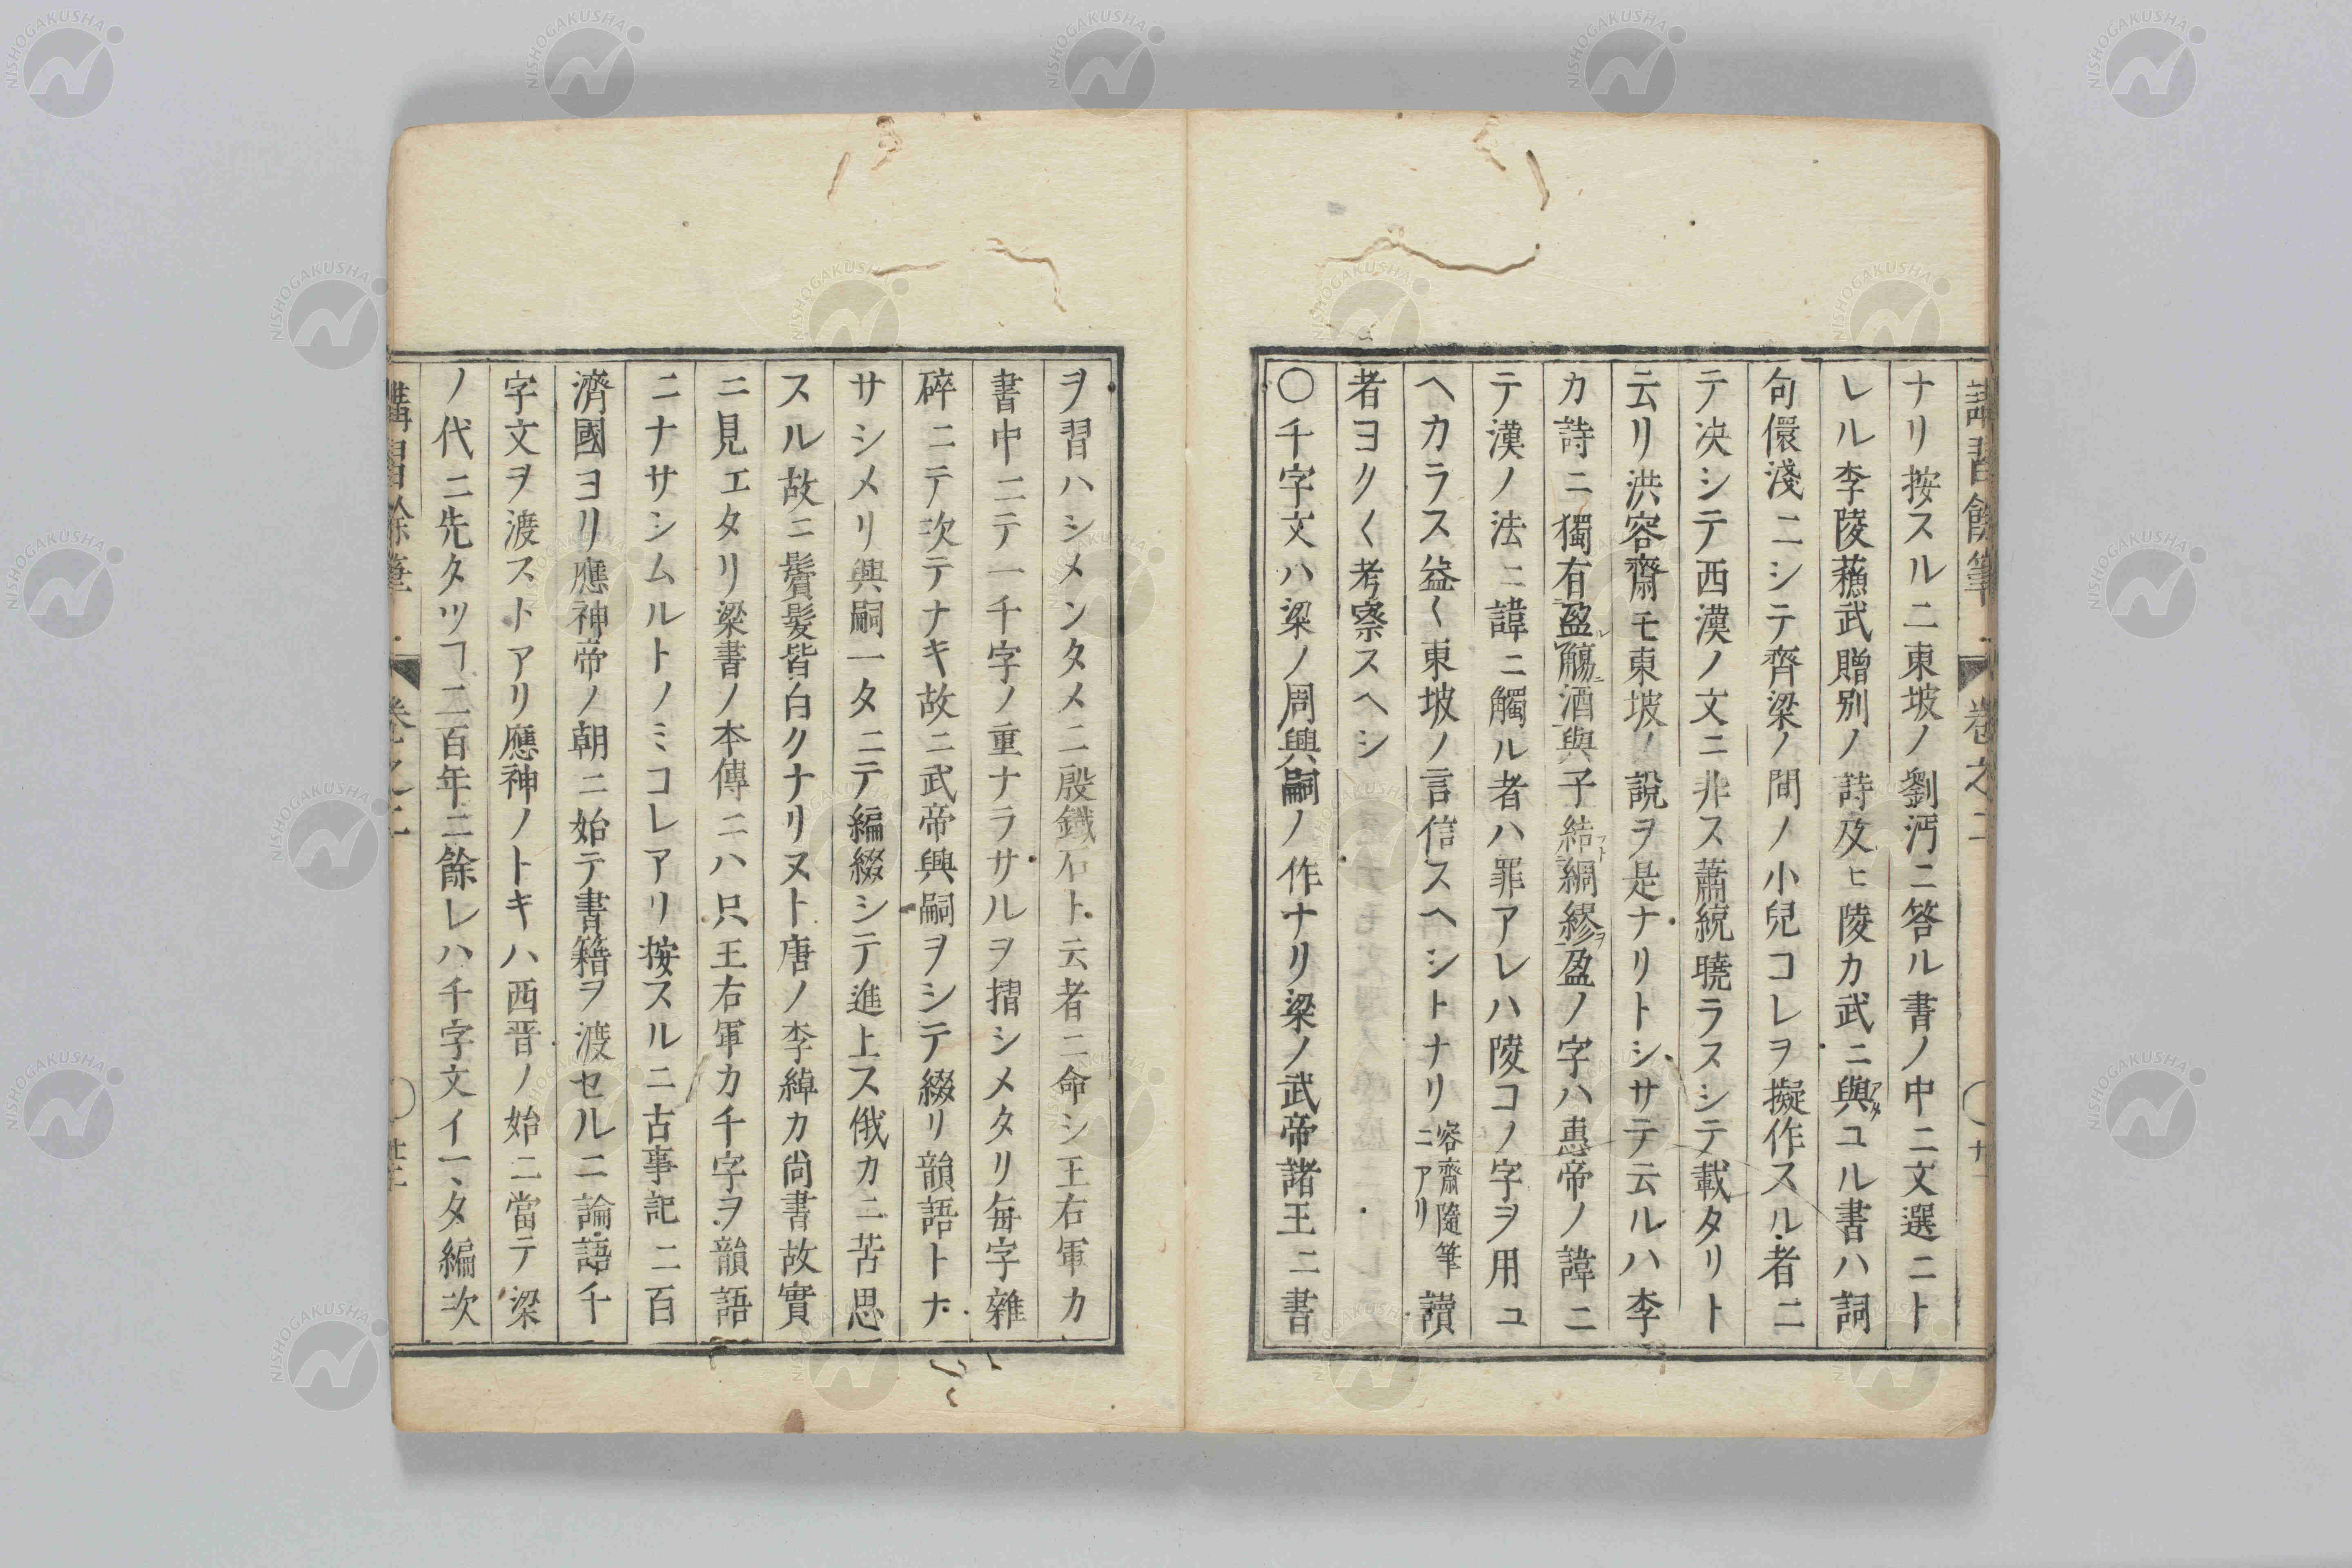 講習餘筆 卷之二 廿
ナリ按スルニ東坡ノ劉沔ニ答ル書ノ中ニ文選ニト
レル李陵蘓武贈別ノ詩及ヒ陵カ武ニ與アタユル書ハ詞
句儇淺ニシテ齊梁ノ間ノ小兒コレヲ擬作スル者ニ
テ决シテ西漢ノ文ニ非ス蕭統曉ラスシテ載タリト
云リ洪容齋モ東坡ノ説ヲ是ナリトシサテ云ルハ李
カ詩ニ獨有盈ル觴ニ酒與子結フト綢繆ヲ盈ノ字ハ惠帝ノ諱ニ
テ漢ノ法ニ諱ニ觸ル者ハ罪アレハ陵コノ字ヲ用ユ
ヘカラス益〱東坡ノ言信スヘシトナリ容齋隨筆ニアリ讀
者ヨク〱考察スヘシ
〇千字文ハ梁ノ周興嗣ノ作ナリ梁ノ武帝諸王ニ書
ヲ習ハシメンタメニ殷鐵石ト云者ニ命シ王右軍カ
書中ニテ一千字ノ重ナラサルヲ摺シメタリ毎字雜
碎ニテ次テナキ故ニ武帝興嗣ヲシテ綴リ韻語トナ
サシメリ興嗣一タニテ編綴シテ進上ス俄カニ苦思
スル故ニ鬢髮皆白クナリヌト唐ノ李綽カ尚書故實
ニ見エタリ梁書ノ本傳ニハ只王右軍カ千字ヲ韻語
ニナサシムルトノミコレアリ按スルニ古事記ニ百
濟國ヨリ應神帝ノ朝ニ始テ書籍ヲ渡セルニ論語千
字文ヲ渡ストアリ應神ノトキハ西晋ノ始ニ當テ梁
ノ代ニ先タツヿ二百年ニ餘レハ千字文イマタ編次
講習餘筆 卷之二